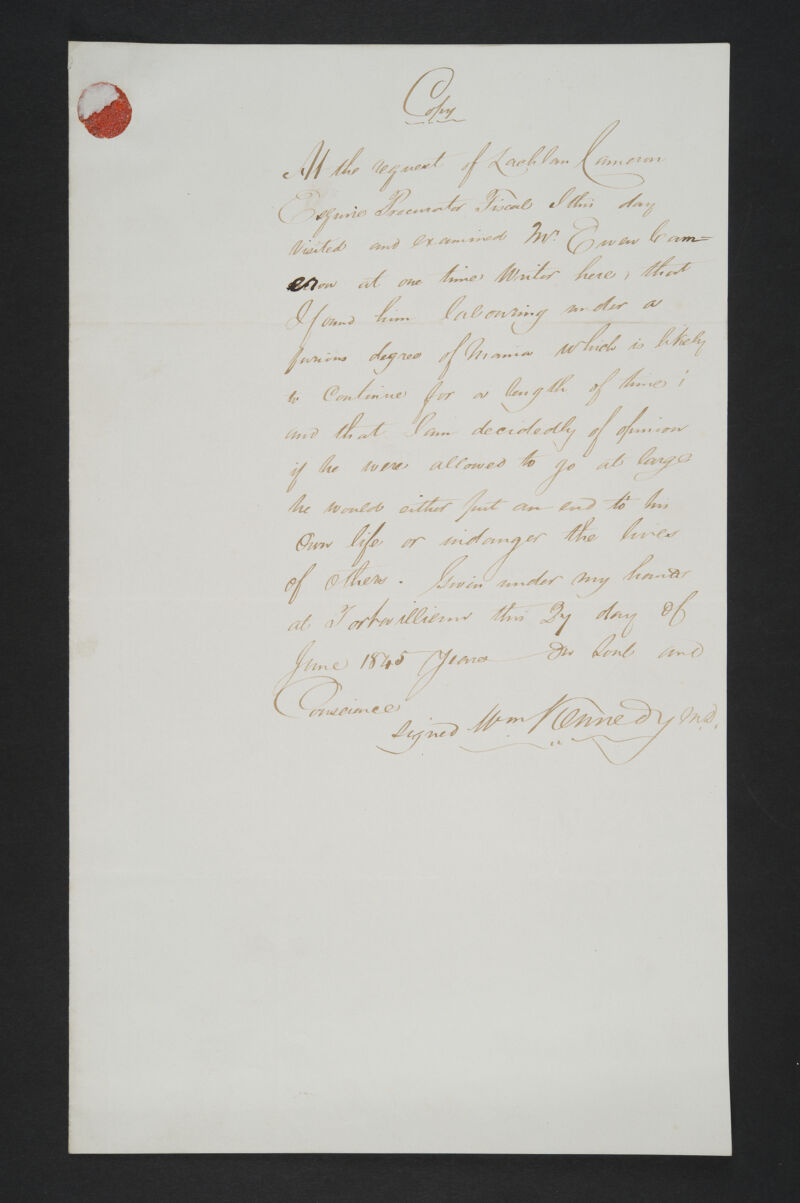 Copy
At the request of Lachlan Cameron
Esquire Procurator Fiscal I this day
Visited and examined Mr. Ewen Cam=
eron at one time Writer here, that
I found him labouring under a
furious degree of Mania which is likely
to Continue for a length of time;
and that I am decidedly of opinion
if he were allowed to go at large
he would either put an end to his
Own life or indanger the lives
of others. Given under my hand
at Fortwilliam this 27 day of
June 1845 Years On Soul and
Conscience
signed Wm Kennedy M.D.